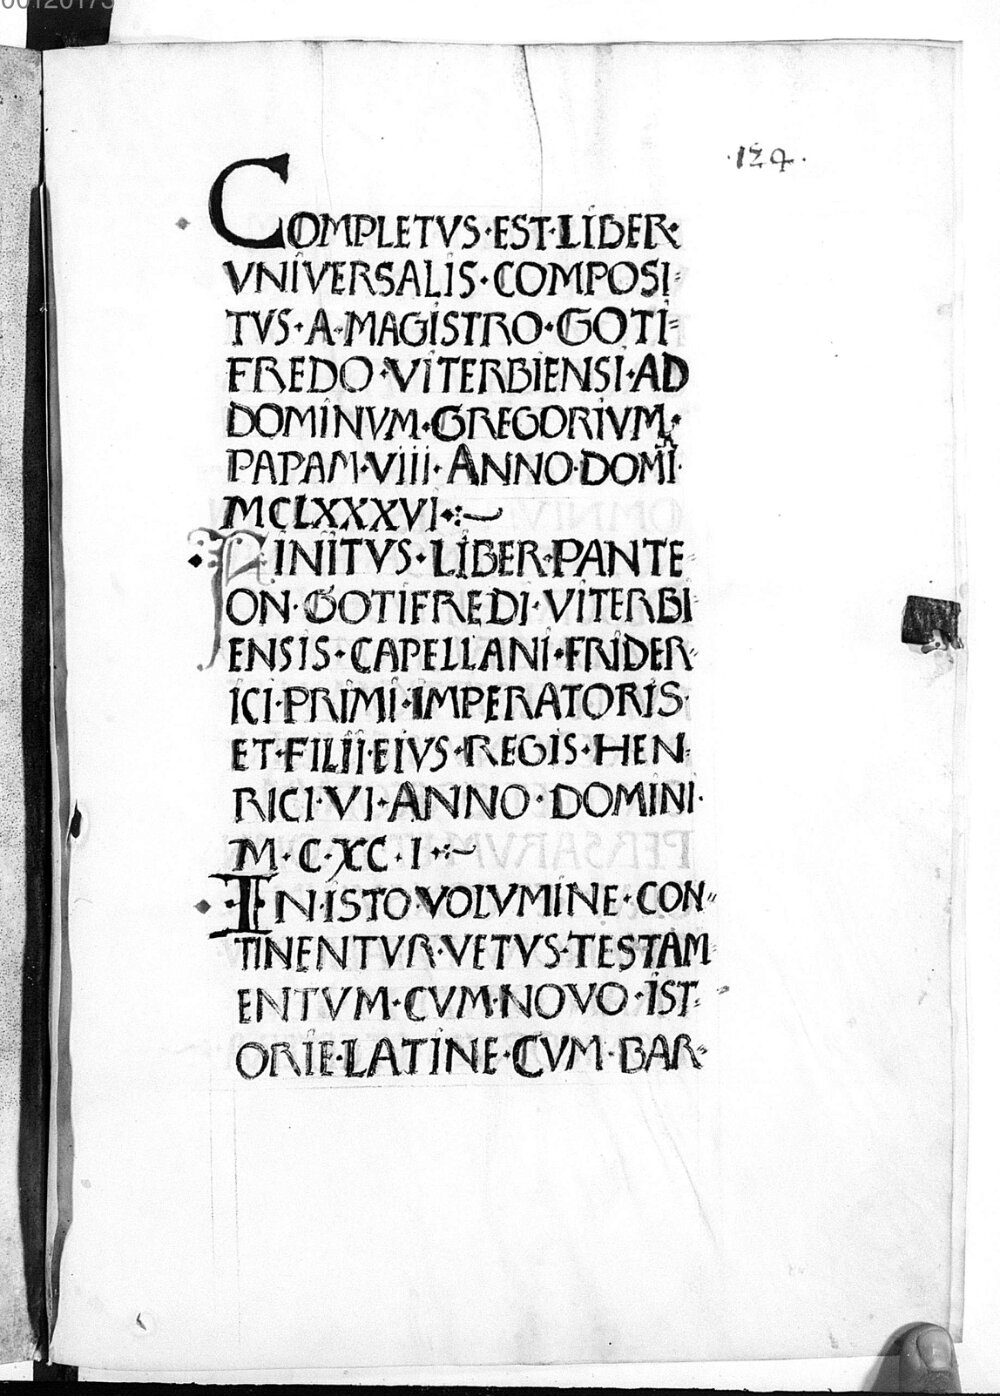 00120173
·124·
COMPLETVS·EST·LIBER·
VNIVERSALIS·COMPOSI-
TVS·A·MAGISTRO·GOTI-
FREDO·VITERBIENSI·AD
DOMINVM·GREGORIVM·
PAPAM·VIII·ANNO·DOMĪ·
MCLXXXVI·:~
FINITVS·LIBER·PANTE
ON·GOTIFREDI·VITERBI
ENSIS·CAPELLANI·FRIDER
ICI·PRIMI·IMPERATORIS·
ET·FILII·EIVS·REGIS·HEN
RICI·VI·ANNO·DOMINI·
M·C·XC·I·:~
IN·ISTO·VOLVMINE·CON-
TINENTVR·VETVS·TESTAM
ENTVM·CVM·NOVO·IST-
ORIE·LATINE·CVM·BAR·